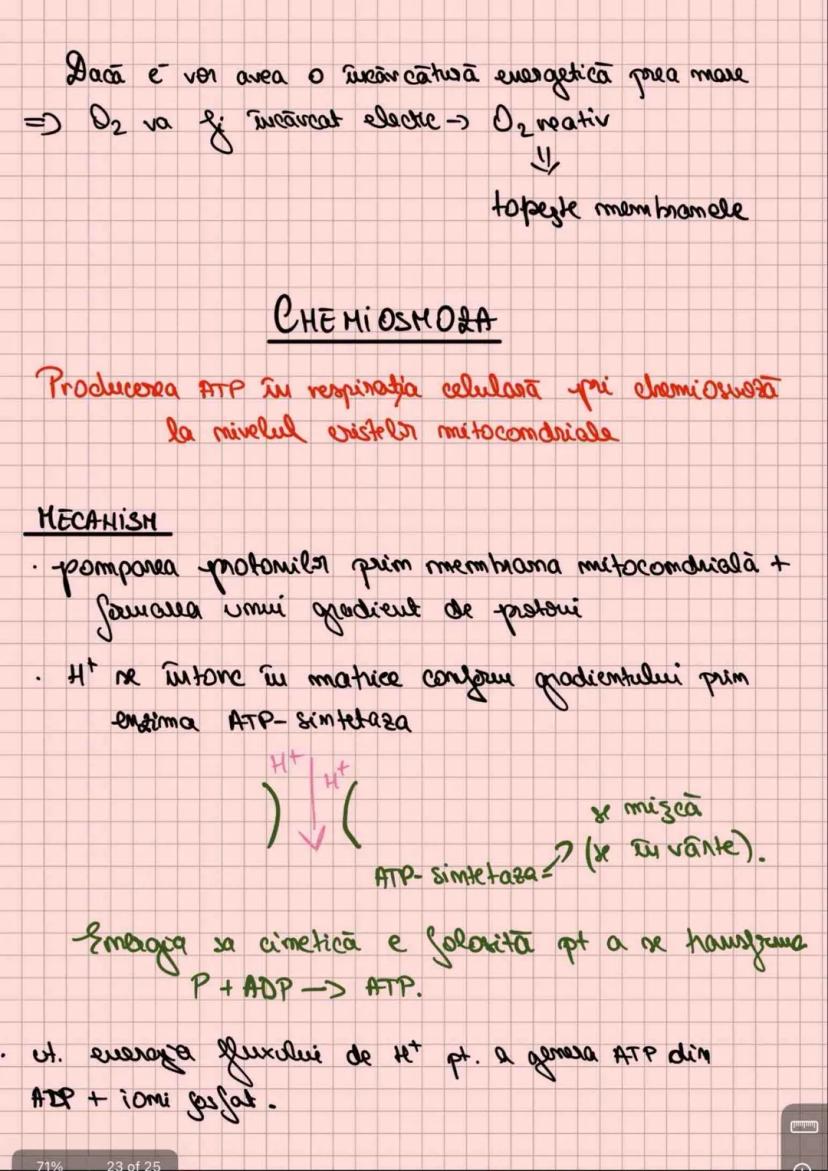 Dacă e⁻ vor avea o încărcătură energetică prea mare
=> O₂ va fi încărcat electric -> O₂ reativ
⇓
topește membranele
CHEMIOSMOZA
Producerea ATP în respirația celulară pri chemiosmoză
la nivelul cristelor mitocondriale
MECANISM
· pomparea protonilor prin membrana mitocondrială +
formarea unui gradient de protoni
· H⁺ se întorc în matrice conform gradientului prin
enzima ATP-sintetaza
H⁺
H⁺
se mișcă
ATP-sintetaza (se învârte).
Energia sa cinetică e folosită pt a se transforma
P + ADP -> ATP.
· ut. energia fluxului de H⁺ pt. a genera ATP din
ADP + ioni fosfat.
71% 23 of 25